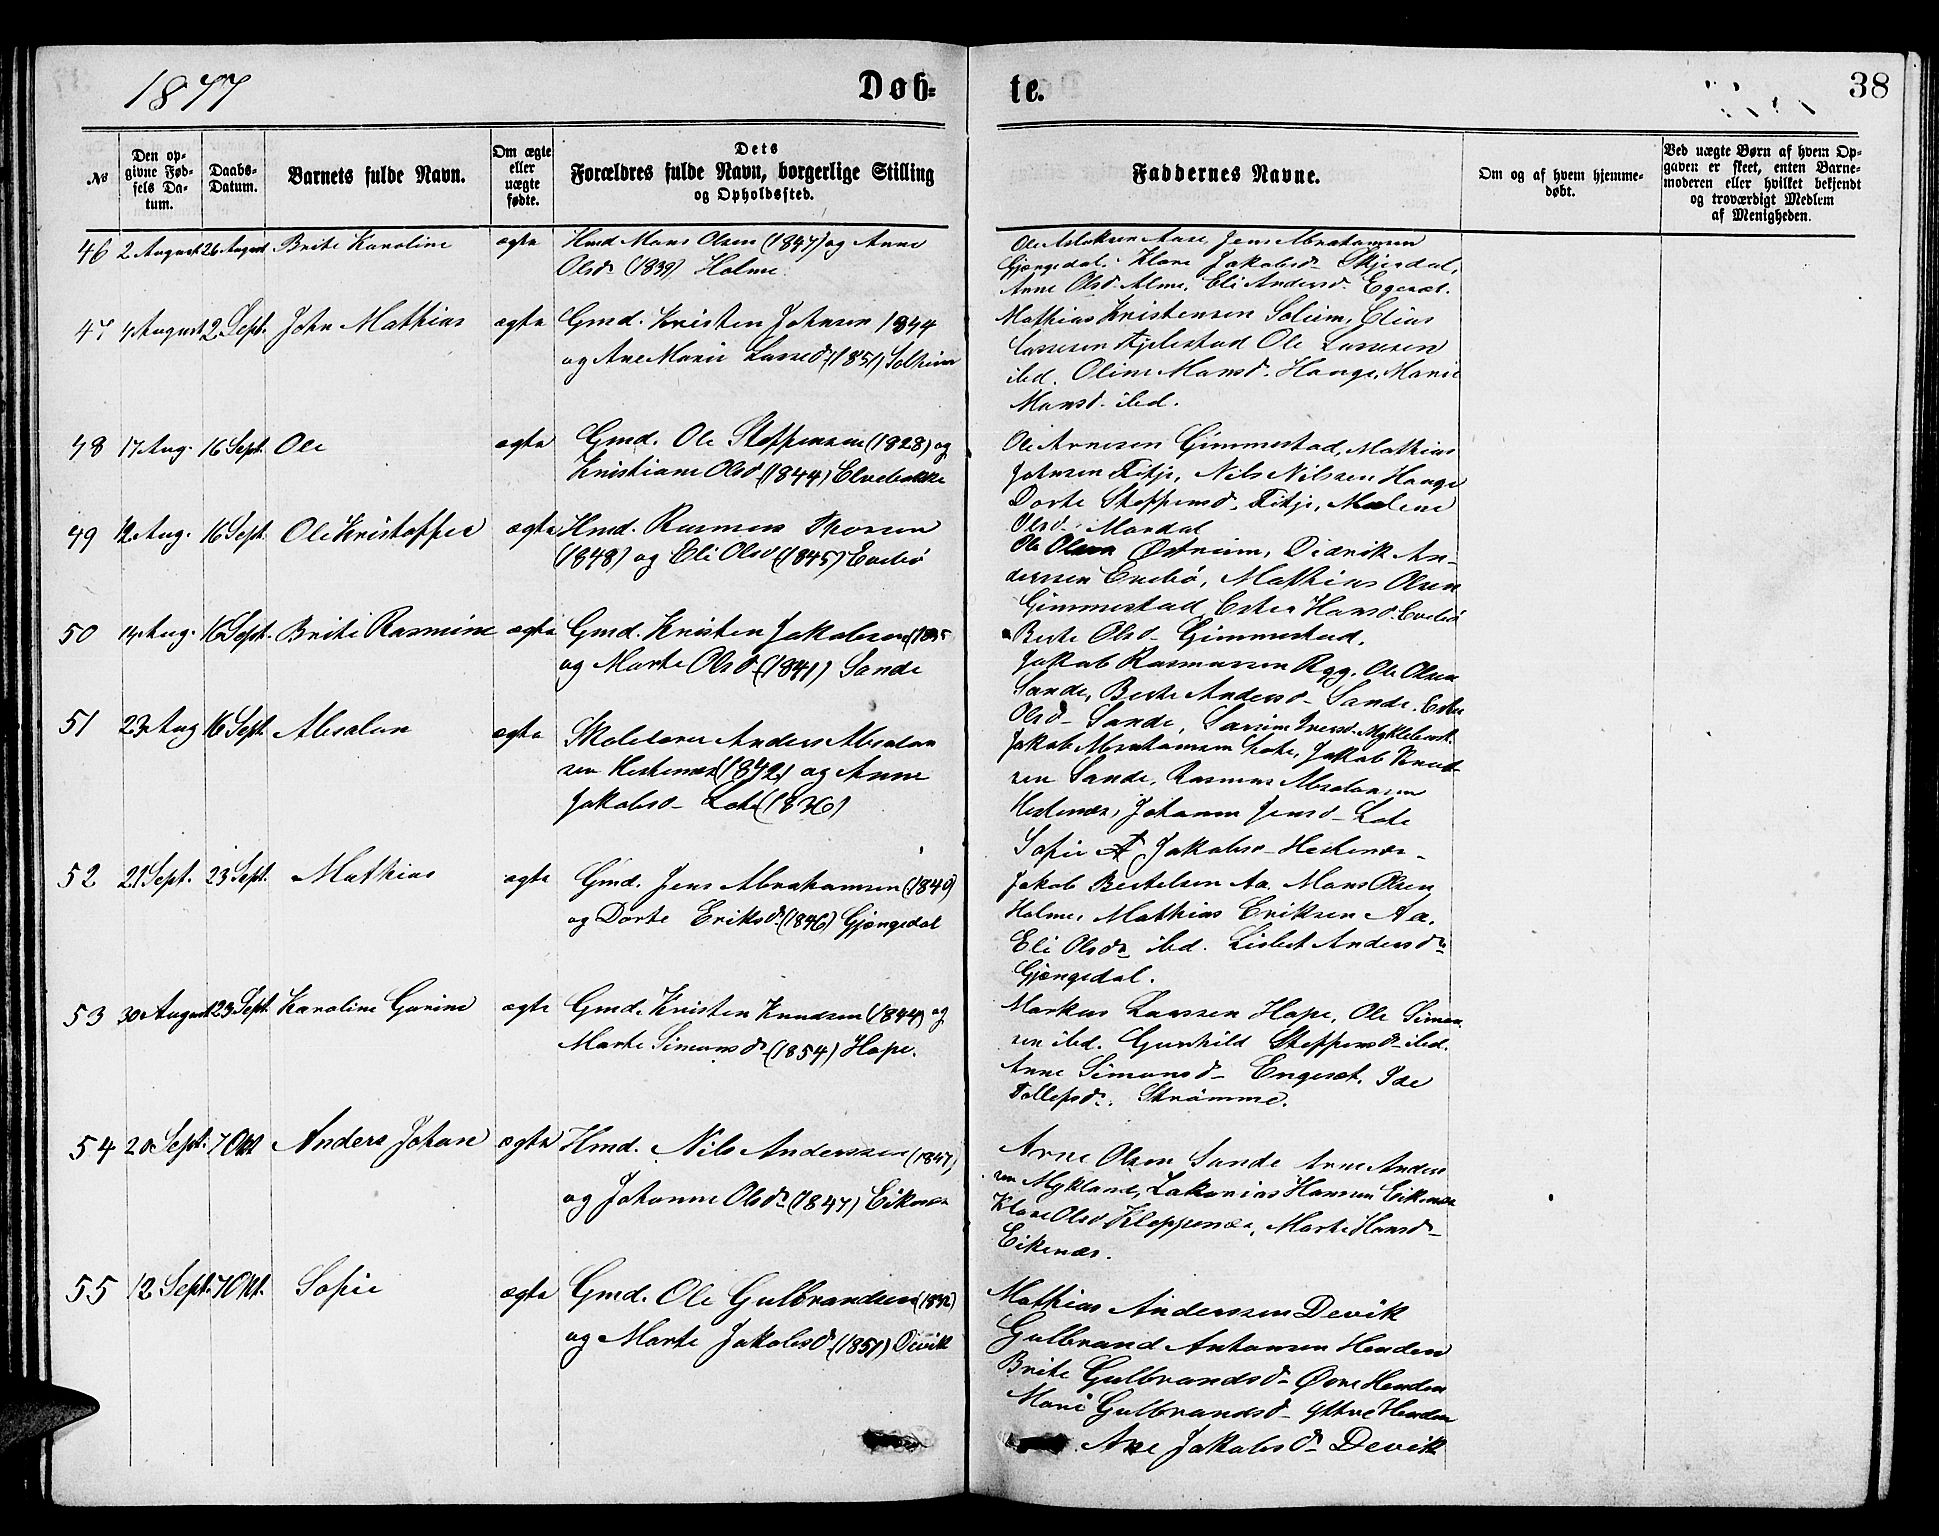 1877
Døb-
te.
38
No
Den op-
givne Fød-
sels Da-
tum.
Daabs-
Datum.
Barnets fulde Navn.
Om ægte
eller
uægte
fødte.
Dets
Forældres fulde Navn, borgerlige Stilling
og Opholdssted.
Faddernes Navne.
Om og af hvem hjemme-
døbt.
Ved uægte Børn af hvem Op-
gaven er skeet, enten Barne-
moderen eller hvilket bekjendt
og troværdigt Medlem
af Menigheden.
46 2 August 26 August Brite Karoline ægte Hmd Mons Olsen (1847) og Anne
Olsd. (1839) Holme
Ole Aslaksen Aase, Jens Abrahamsen
Gjengedal, Klare Jakobsd Skjerdal,
Anne Olsd Alme, Eli Andersd. Egeset.
47 4 August 2 Sept. John Mathias ægte Gmd. Kristen Johnsen 1844
og Ane Marie Lassed. (1851) Solheim
Mathias Kristensen Soleim, Elias
Lassesen Ole Lassesen
ibd. Oline Monsd. Hauge, Marie
Monsd. ibd.
48 17 Aug. 16 Sept. Ole ægte Gmd. Ole Steffensen (1828) og
Kristiane Olsd (1844) Elvebakke
Ole Arnesen Gimmestad, Mathias
Johnsen Fitje, Nils Nilssen Hauge
Dorte Steffensd. Fitje, Malene
Olsd. Mardal
49 12 Aug. 16 Sept. Ole Kristoffer ægte Hmd. Rasmus Thoresen
(1848) og Eli Olsd (1845) Evebø
Ole Olsen Østreim, Didrik An-
derssen Evebø, Mathias Olsen
Gimmestad, Ester Hansd. Evebø
Berte Olsd. Gimmestad.
50 14 Aug. 16 Sept. Brite Rasmine ægte Gmd. Kristen Jakobsen (1835
og Marte Olsd. (1841) Sande
Jakob Rasmussen Rygg, Ole Olsen
Sande, Berte Andersd. Sande, Ester
Olsd. Sande, Larsine Iversd. Myklebust.
51 23 Aug 16 Sept. Absalon ægte Skolelærer Anders Absalon
sen Hestenes (1842) og Anne
Jakobsd. Lote (1836)
Jakob Abrahamsen Lote, Jakob Knud-
sen Sande, Rasmus Absalonsen
Hestenes, Johanne Jensd. Lote
Sofie A Jakobsd. Hestenes.
52 21 Sept. 23 Sept. Mathias ægte Gmd. Jens Abrahamsen (1840)
og Dorte Eriksd. (1846) Gjengedal
Jakob Bertelsen Aa, Mons Olsen
Holme, Mathias Eriksen Aa.
Eli Olsd. ibd. Lisbet Andersd.
Gjengedal.
53 30 August 23 Sept. Karoline Gurine ægte Gmd. Kristen Knudsen (1844) og
Marte Simonsd. (1854) Hope.
Markus Larssen Hope, Ole Simon
sen ibd. Gunhild Steffensd. ibd.
Anne Simonsd. Engeset, Ide
Tollefsd. Strømme.
54 20 Sept. 7 Okt Anders Johan ægte Hmd. Nils Anderssen (1847)
og Johanne Olsd. (1847) Eikenes
Arne Olsen Sande Arne Anders
sen Mykland, Zakarias Hansen Eikenes
Klare Olsd Kleppenes, Marte Hansd.
Eikenes.
55 12 Sept. 7 Okt. Sofie ægte Gmd. Ole Gulbrandsen (1832)
og Marte Jakobsd (1851) Devik
Mathias Anderssen Devik
Gulbrand Antonsen Henden
Brite Gulbrandsd. Øvre Henden
Marie Gulbrandsd. Yttre Henden
Ane Jakobsd. Devik